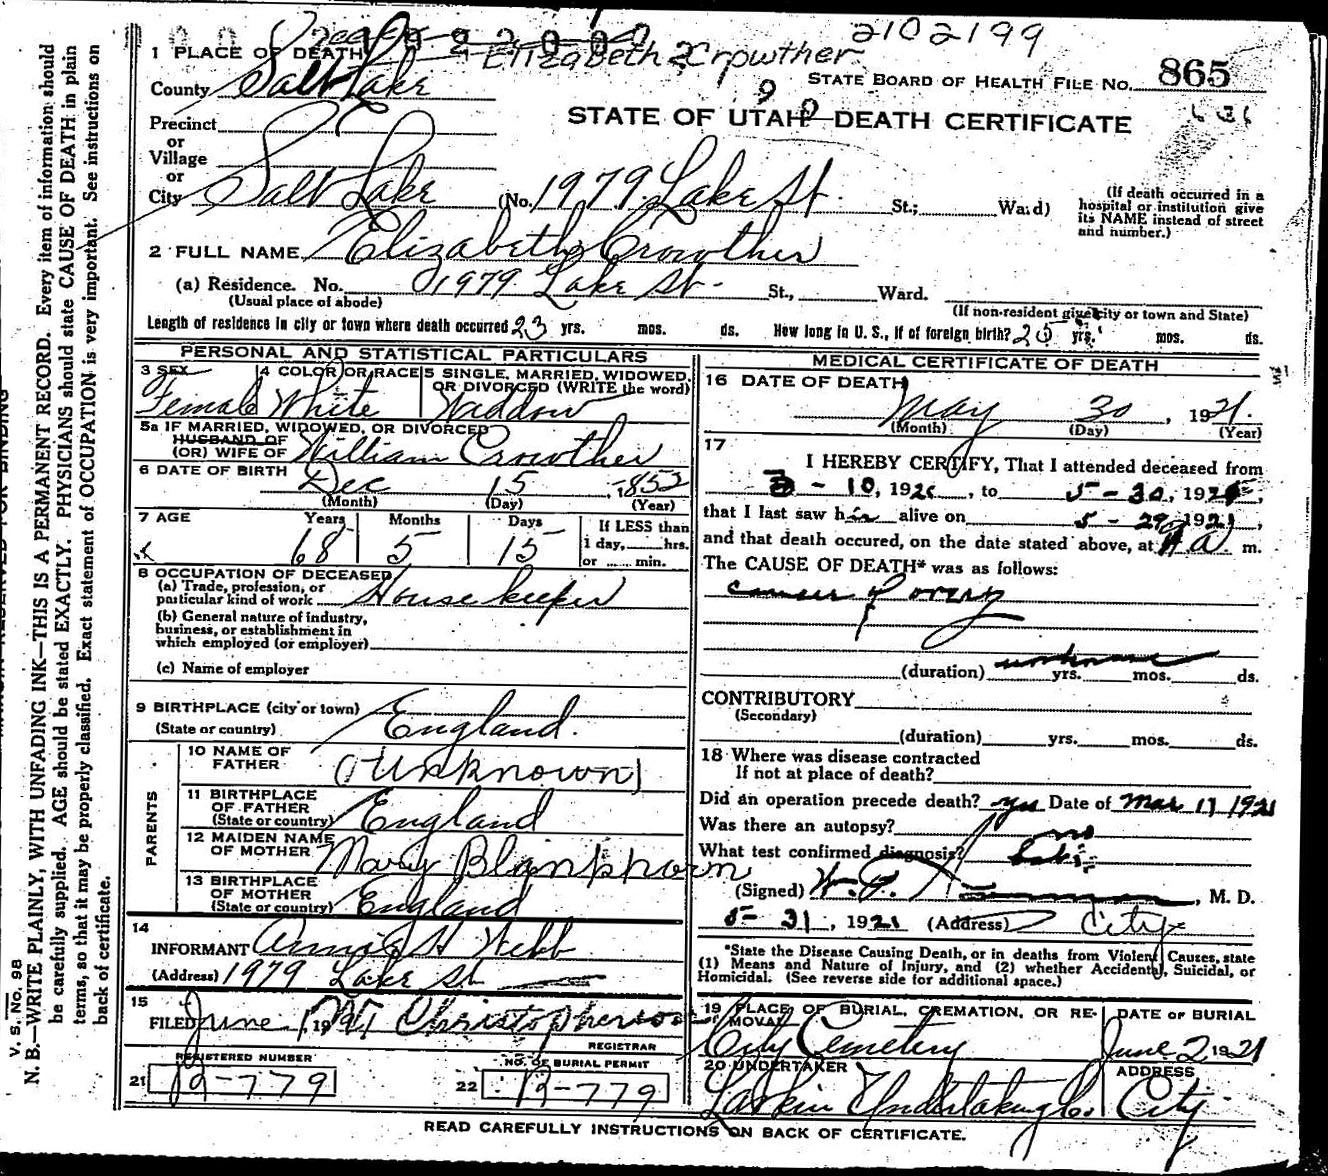 2102199
Elizabeth Crowther
1 PLACE OF DEATH
STATE BOARD OF HEALTH FILE No. 865
County Salt Lake
STATE OF UTAH—DEATH CERTIFICATE
Precinct
or
Village
or
City Salt Lake (No. 1979 Lake St. St.; Ward)
(If death occurred in a
hospital or institution give
its NAME instead of street
and number.)
2 FULL NAME Elizabeth Crowther
(a) Residence. No. 1979 Lake St. St., Ward.
(Usual place of abode) (If non-resident give city or town and State)
Length of residence in city or town where death occurred 23 yrs. mos. ds. How long in U. S., if of foreign birth? 25 yrs. mos. ds.
PERSONAL AND STATISTICAL PARTICULARS
3 SEX 4 COLOR OR RACE 5 SINGLE, MARRIED, WIDOWED,
OR DIVORCED (WRITE the word)
Female White Widdow
5a IF MARRIED, WIDOWED, OR DIVORCED
HUSBAND OF
(OR) WIFE OF William Crowther
6 DATE OF BIRTH Dec 15, 1852
(Month) (Day) (Year)
7 AGE Years Months Days If LESS than
1 day, hrs.
or min.
68 5 15
8 OCCUPATION OF DECEASED
(a) Trade, profession, or
particular kind of work House keeper
(b) General nature of industry,
business, or establishment in
which employed (or employer)
(c) Name of employer
9 BIRTHPLACE (city or town)
(State or country) England.
PARENTS
10 NAME OF
FATHER (Unknown)
11 BIRTHPLACE
OF FATHER
(State or country) England
12 MAIDEN NAME
OF MOTHER Mary Blankhorn
13 BIRTHPLACE
OF MOTHER
(State or country) England
14
INFORMANT Annie H Webb
(Address) 1979 Lake St
15
FILED June 1, 1921 Christopherson
REGISTRAR
REGISTERED NUMBER
21 B-779
NO. OF BURIAL PERMIT
22 B-779
MEDICAL CERTIFICATE OF DEATH
16 DATE OF DEATH
May 30, 1921.
(Month) (Day) (Year)
17
I HEREBY CERTIFY, That I attended deceased from
3-10, 192 , to 5-30, 1921,
that I last saw h alive on 5-29, 1921,
and that death occured, on the date stated above, at a m.
The CAUSE OF DEATH* was as follows:
cancer of ovary
(duration) unknown yrs. mos. ds.
CONTRIBUTORY
(Secondary)
(duration) yrs. mos. ds.
18 Where was disease contracted
If not at place of death?
Did an operation precede death? yes Date of Mar 11 1921
Was there an autopsy? no
What test confirmed diagnosis?
(Signed) , M. D.
5-31, 1921 (Address) City
*State the Disease Causing Death, or in deaths from Violent Causes, state
(1) Means and Nature of Injury, and (2) whether Accidental, Suicidal, or
Homicidal. (See reverse side for additional space.)
19 PLACE OF BURIAL, CREMATION, OR RE-
MOVAL City Cemetery
DATE OF BURIAL
June 2 1921
20 UNDERTAKER
Larkin Undertaking Co.
ADDRESS
City
READ CAREFULLY INSTRUCTIONS ON BACK OF CERTIFICATE.
V. S. No. 98
N. B.—WRITE PLAINLY, WITH UNFADING INK—THIS IS A PERMANENT RECORD. Every item of information should
be carefully supplied. AGE should be stated EXACTLY. PHYSICIANS should state CAUSE OF DEATH in plain
terms, so that it may be properly classified. Exact statement of OCCUPATION is very important. See instructions on
back of certificate.